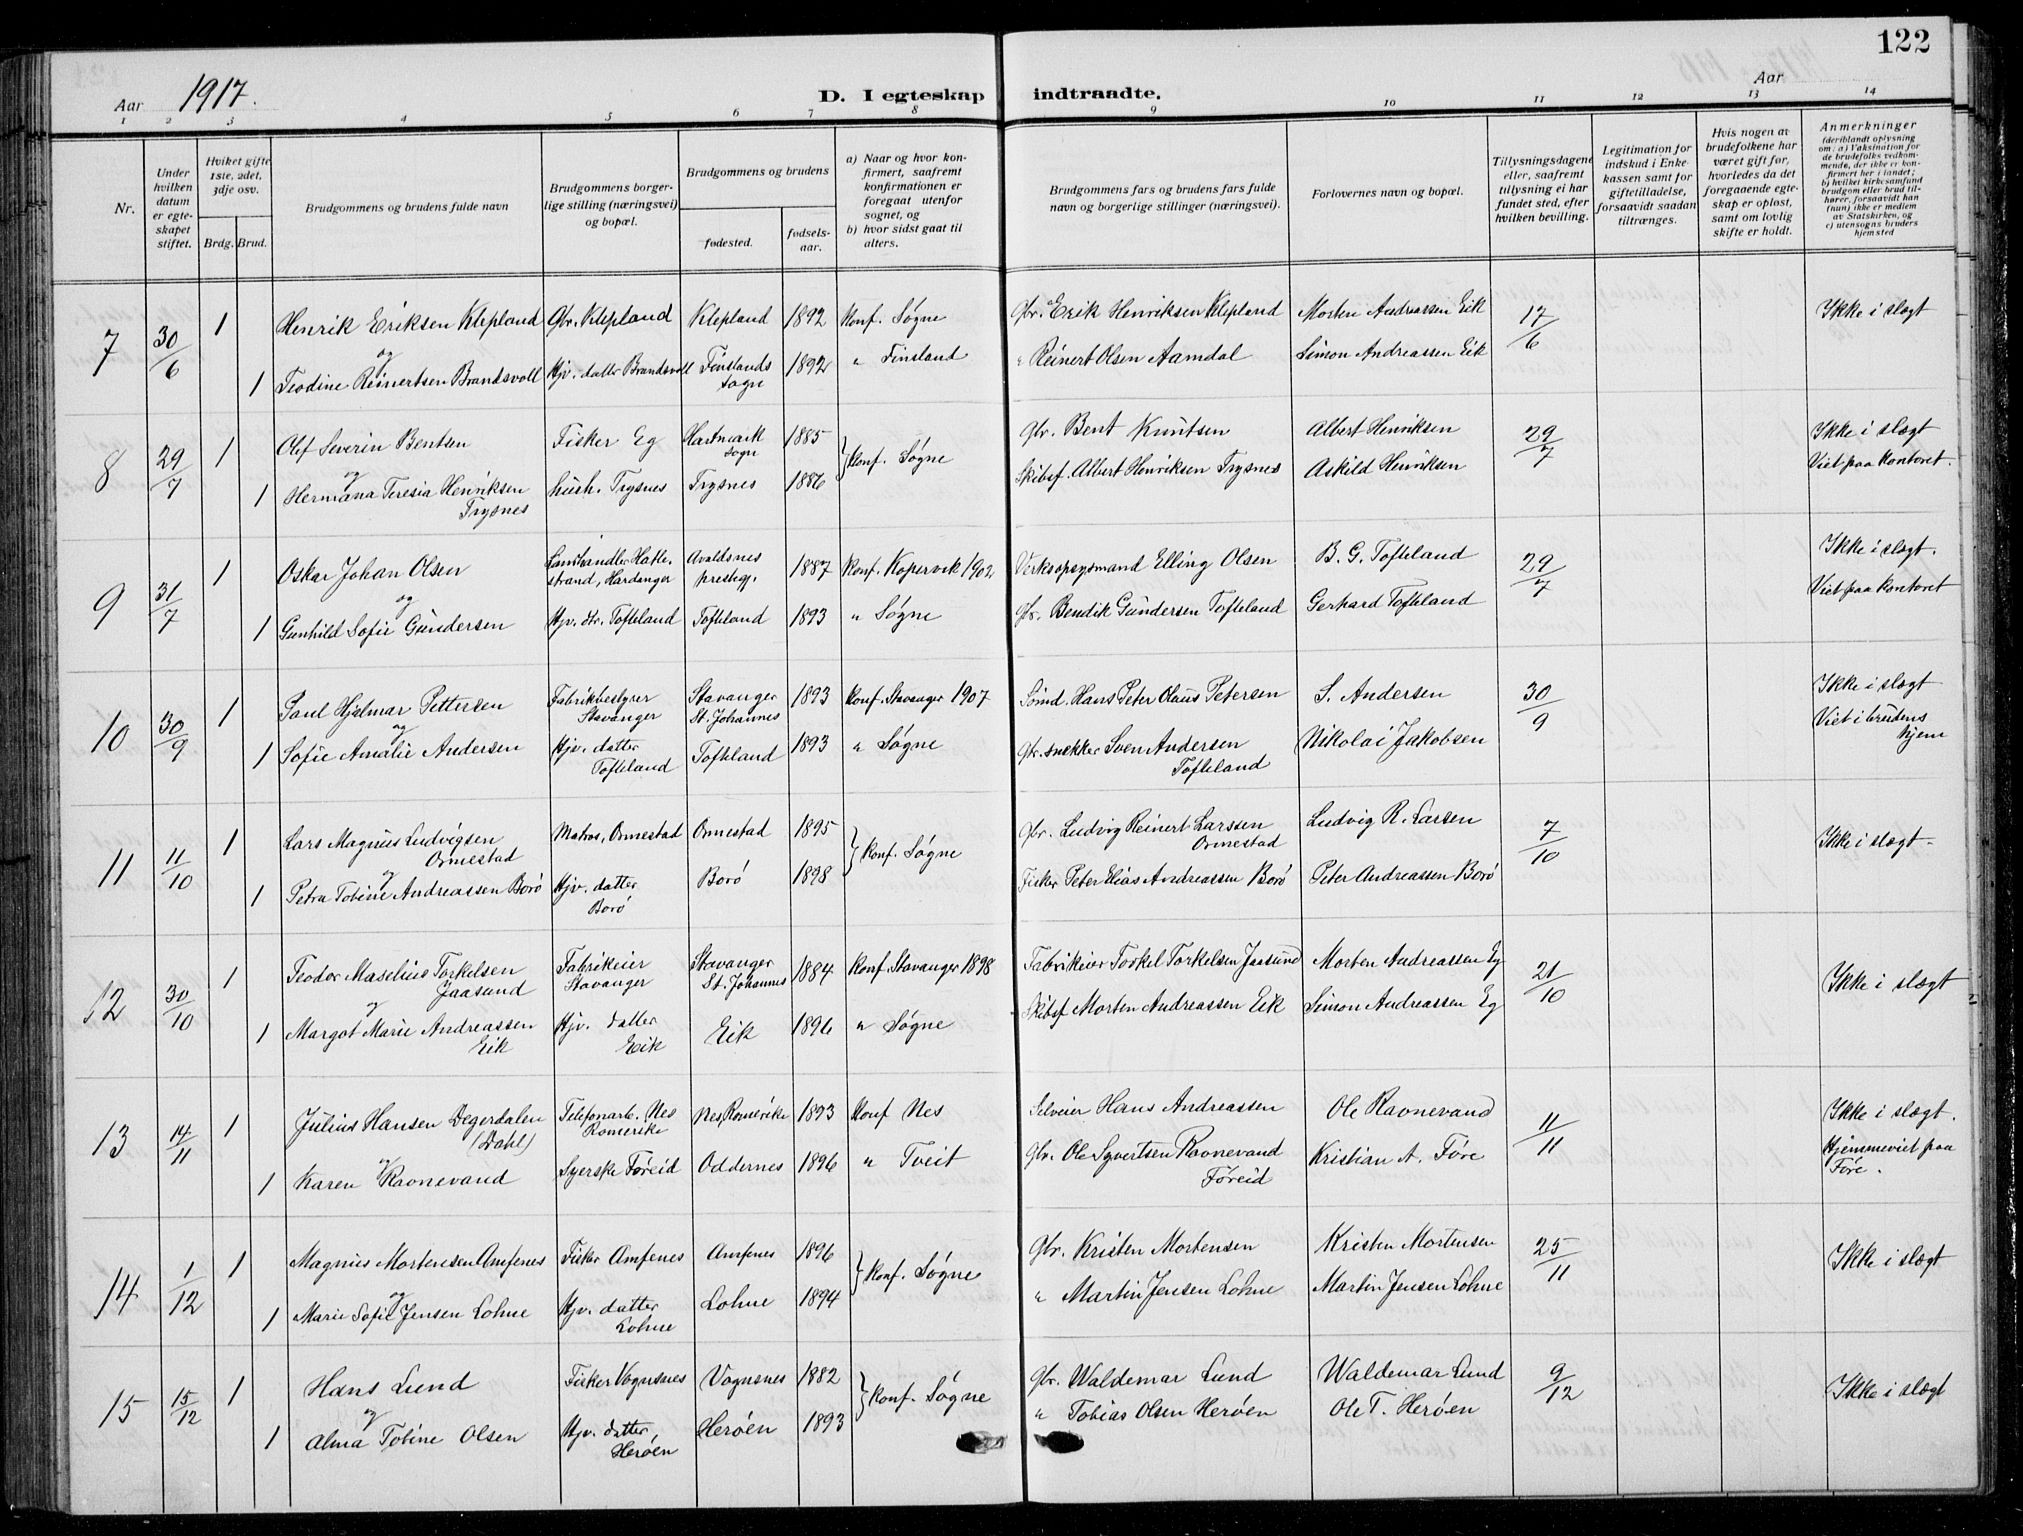 122
Aar 1917.
D. I egteskap indtraadte.
Aar
1 2 3 4 5 6 7 8 9 10 11 12 13 14
Nr.
Under hvilken datum er egteskapet stiftet.
Hviket gifte 1ste, 2det, 3dje osv.
Brdg. Brud.
Brudgommens og brudens fulde navn
Brudgommens borgerlige stilling (næringsvei) og bopæl.
Brudgommens og brudens
fødested. fødselsaar.
a) Naar og hvor konfirmert, saafremt konfirmationen er foregaat utenfor sognet, og
b) hvor sidst gaat til alters.
Brudgommens fars og brudens fars fulde navn og borgerlige stillinger (næringsvei).
Forlovernes navn og bopæl.
Tillysningsdagene eller, saafremt tillysning ei har fundet sted, efter hvilken bevilling.
Legitimation for indskud i Enkekassen samt for giftetilladelse, forsaavidt saadan tiltrænges.
Hvis nogen av brudefolkene har været gift før, hvorledes da det foregaaende egteskap er opløst, samt om lovlig skifte er holdt.
Anmerkninger (deriblandt oplysning om: a) Vaksination for de brudefolks vedkommende, der ikke er konfirmert her i landet; b) hvilket kirkesamfund brudgom eller brud tilhører, forsaavidt han (hun) ikke er medlem av Statskirken, og c) utensogns bruders hjemsted
7 30/6 1 Henrik Eriksen Klepland Gbr. Klepland Klepland 1892 Konf. Søgne Gbr. Erik Henriksen Klepland Morten Andreassen Eik 17/6 Ikke i slegt
og
1 Teodine Reinertsen Brandsvoll Hjv. datter Brandsvoll Finslands sogn 1892 " Finsland " Reinert Olsen Aamdal Simon Andreassen Eik
8 29/7 1 Olef Severin Bentsen Fisker Eg Hartmark sogn 1885 } Konf. Søgne Gbr. Bent Knutsen Albert Henriksen 29/7 Ikke i slegt
og
Viet paa kontoret.
1 Hermana Teresia Henriksen Trysnes hush. Trysnes Trysnes 1886 Skibsf. Albert Henriksen Trysnes Askild Henriksen
9 31/7 1 Oskar Johan Olsen Landhandler Hatlestrand, Hardanger Avaldsnes prestegj. 1887 Konf. Kopervik 1902 Verksopsysmand Elling Olsen B. G. Tofteland 29/7 Ikke i slegt.
og
Viet paa kontoret
1 Gunhild Sofie Gundersen Hjv. dtr. Tofteland Tofteland 1893 " Søgne Gbr. Bendik Gundersen Tofteland Gerhard Tofteland
10 30/9 1 Paul Hjelmar Pettersen Fabrikbestyrer Stavanger Stavanger St. Johannes 1893 Konf. Stavanger 1907 Hans Peter Olaus Petersen S. Andersen 30/9 Ikke i slegt
og
Viet i brudens hjem
1 Sofie Amalie Andersen Hjv. datter Tofteland Tofteland 1893 " Søgne Gbr. snekker Sven Andersen Tofteland Nikolai Jakobsen
11 11/10 1 Lars Magnus Ludvigsen Ormestad Matros, Ormestad Ormestad 1895 } Konf. Søgne Gbr. Ludvig Reinert Larssen Ormestad Ludvig R. Larsen 7/10 Ikke i slegt.
og
1 Petra Tobine Andreassen Borø Hjv. datter Borø Borø 1898 Fisker Peter Elias Andreassen Borø Peter Andreassen Borø
12 30/10 1 Teodor Maselius Torkelsen Jaasund Fabrikeier Stavanger Stavanger St. Johannes 1884 Konf. Stavanger 1898 Fabrikeier Torkel Torkelsen Jaasund Morten Andreassen Eg 21/10 Ikke i slegt
og
1 Margot Marie Andreassen Eik Hjv. datter Eik Eik 1896 " Søgne Skibsf Morten Andreassen Eik Simon Andreassen Eg
13 14/11 1 Julius Hansen Degerdalen (Dahl) Telefonarb. Nes Romerike Nes, Romerike 1893 Konf Nes Selveier Hans Andreassen Ole Ravnevand 11/11 Ikke i slegt.
og
Hjemmeviet paa Føre.
1 Karen Ravnevand Syerske Føreid Oddernes 1896 " Tveit Gbr. Ole Syvertsen Ravnevand Føreid Kristian A. Føre
14 1/12 1 Magnus Mortensen Amfenes Fisker Amfenes Amfenes 1896 } Konf. Søgne Gbr. Kristen Mortensen Kristen Mortensen 25/11 Ikke i slegt
og
1 Marie Sofie Jensen Lohne Hjv. datter Lohne Lohne 1894 " Martin Jensen Lohne Martin Jensen Lohne
15 15/12 1 Hans Lund Fisker Vognsnes Vognsnes 1882 } Konf. Søgne Gbr. Waldemar Lund Waldemar Lund 9/12 Ikke i slegt
og
1 Alma Tobine Olsen Hjv. datter Herøen Herøen 1893 " Tobias Olsen Herøen Ole T. Herøen